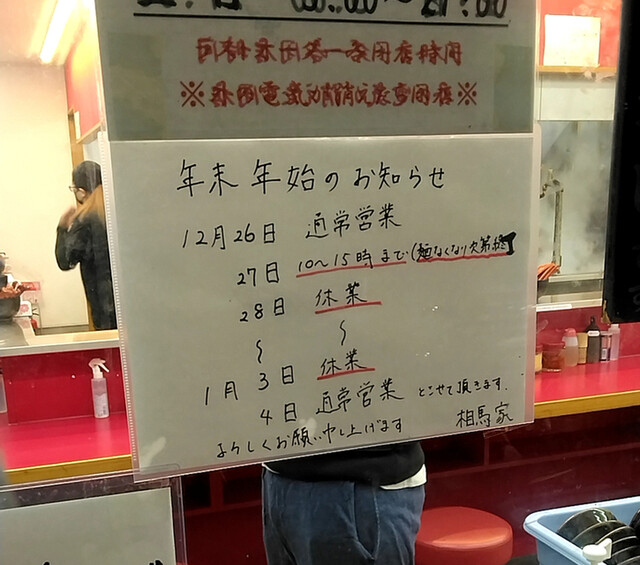 年末年始のお知らせ
12月26日 通常営業
27日 10〜15時まで(麺なくなり次第終了
28日 休業
〜 〜
1月3日 休業
4日 通常営業 とさせて頂きます.
よろしくお願い申し上げます
相馬家